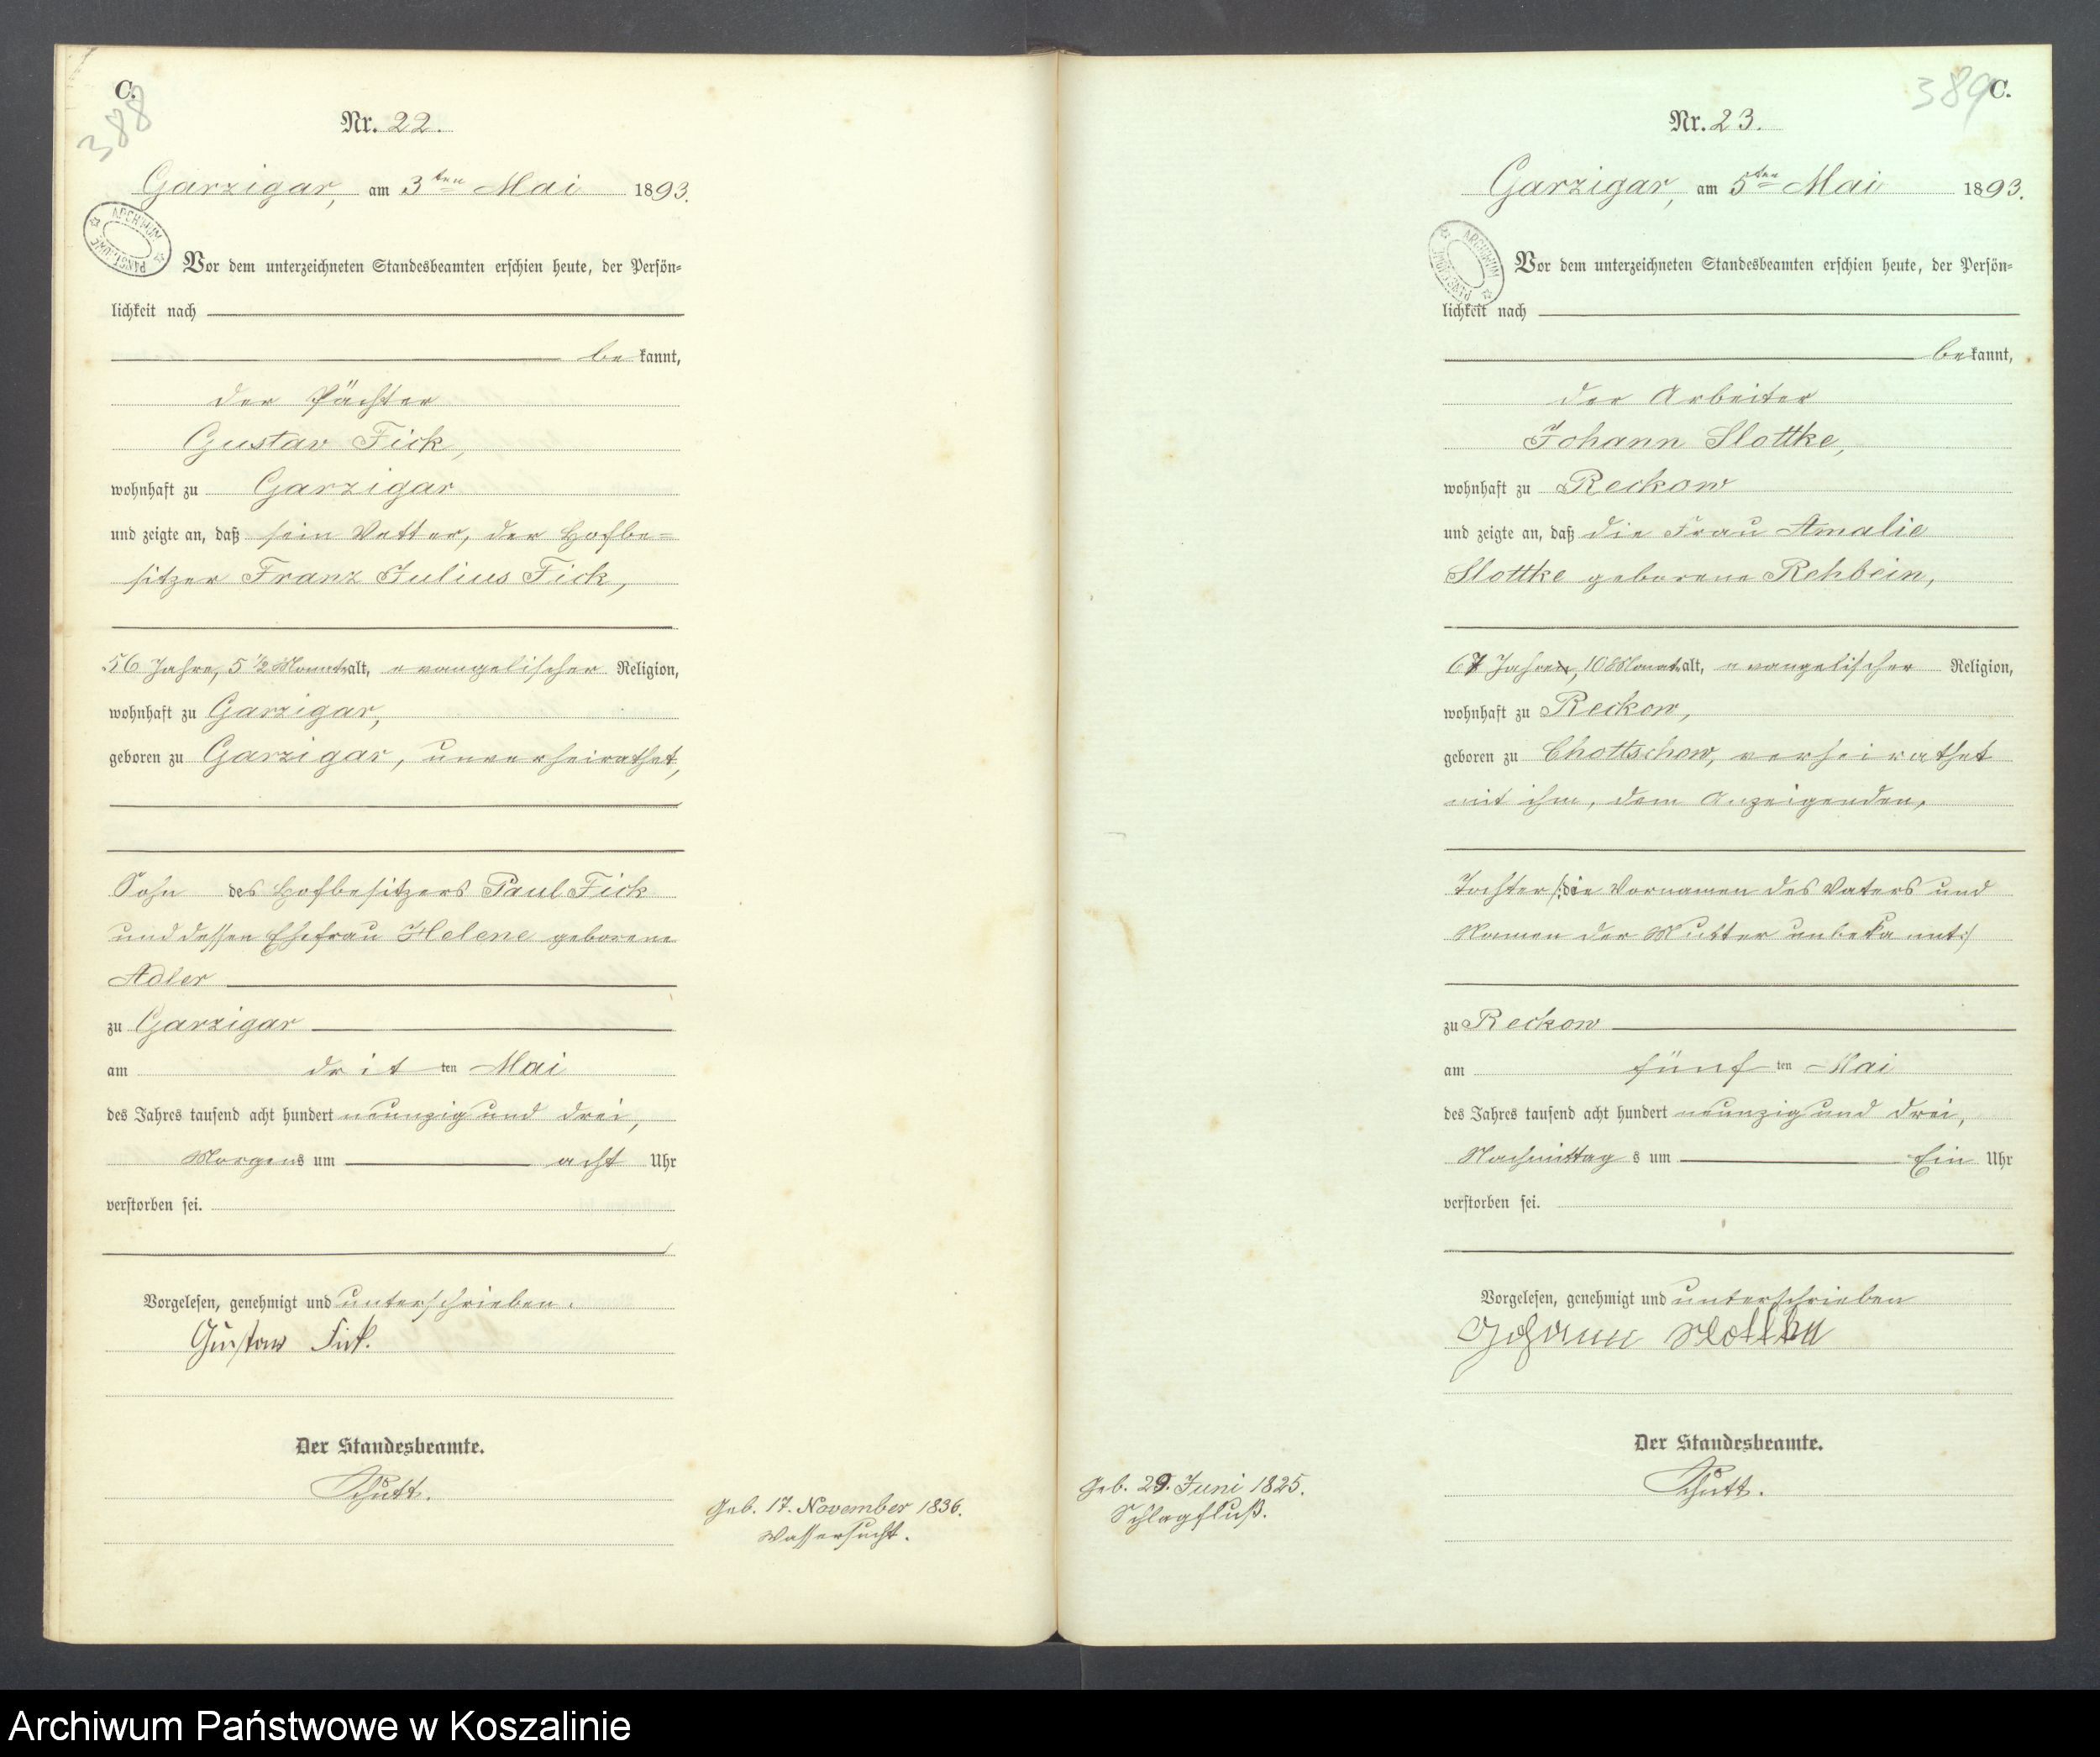 C.
388
Nr. 22.
Garzigar, am 3ten Mai 1893.
ARCHIWUM PAŃSTWOWE
Vor dem unterzeichneten Standesbeamten erschien heute, der Persön-
lichkeit nach
bekannt,
der Pächter
Gustav Fick,
wohnhaft zu Garzigar
und zeigte an, daß sein Vetter, der Hofbe-
sitzer Franz Julius Fick,
56 Jahre, 5 1/2 Monat alt, evangelischer Religion,
wohnhaft zu Garzigar,
geboren zu Garzigar, unverheirathet,
Sohn des Hofbesitzers Paul Fick
und dessen Ehefrau Helene geborene
Adler
zu Garzigar
am dritten Mai
des Jahres tausend acht hundert neunzig und drei,
Morgens um acht Uhr
verstorben sei.
Vorgelesen, genehmigt und unterschrieben.
Gustav Fick.
Der Standesbeamte.
Schütt.
Geb. 17. November 1836.
Wassersucht.
389
C.
Nr. 23.
Garzigar, am 5ten Mai 1893.
ARCHIWUM PAŃSTWOWE
Vor dem unterzeichneten Standesbeamten erschien heute, der Persön-
lichkeit nach
bekannt,
der Arbeiter
Johann Slottke,
wohnhaft zu Reckow
und zeigte an, daß die Frau Amalie
Slottke geborene Rehbein,
67 Jahre, 10 Monat alt, evangelischer Religion,
wohnhaft zu Reckow,
geboren zu Chottschow, verheirathet
mit ihm, dem Anzeigenden,
Tochter /:die Vornamen des Vaters und
Namen der Mutter unbekannt:/
zu Reckow
am fünften Mai
des Jahres tausend acht hundert neunzig und drei,
Nachmittags um Ein Uhr
verstorben sei.
Vorgelesen, genehmigt und unterschrieben
Johann Slottke
Der Standesbeamte.
Schütt.
Geb. 29. Juni 1825.
Schlagfluß.
Archiwum Państwowe w Koszalinie